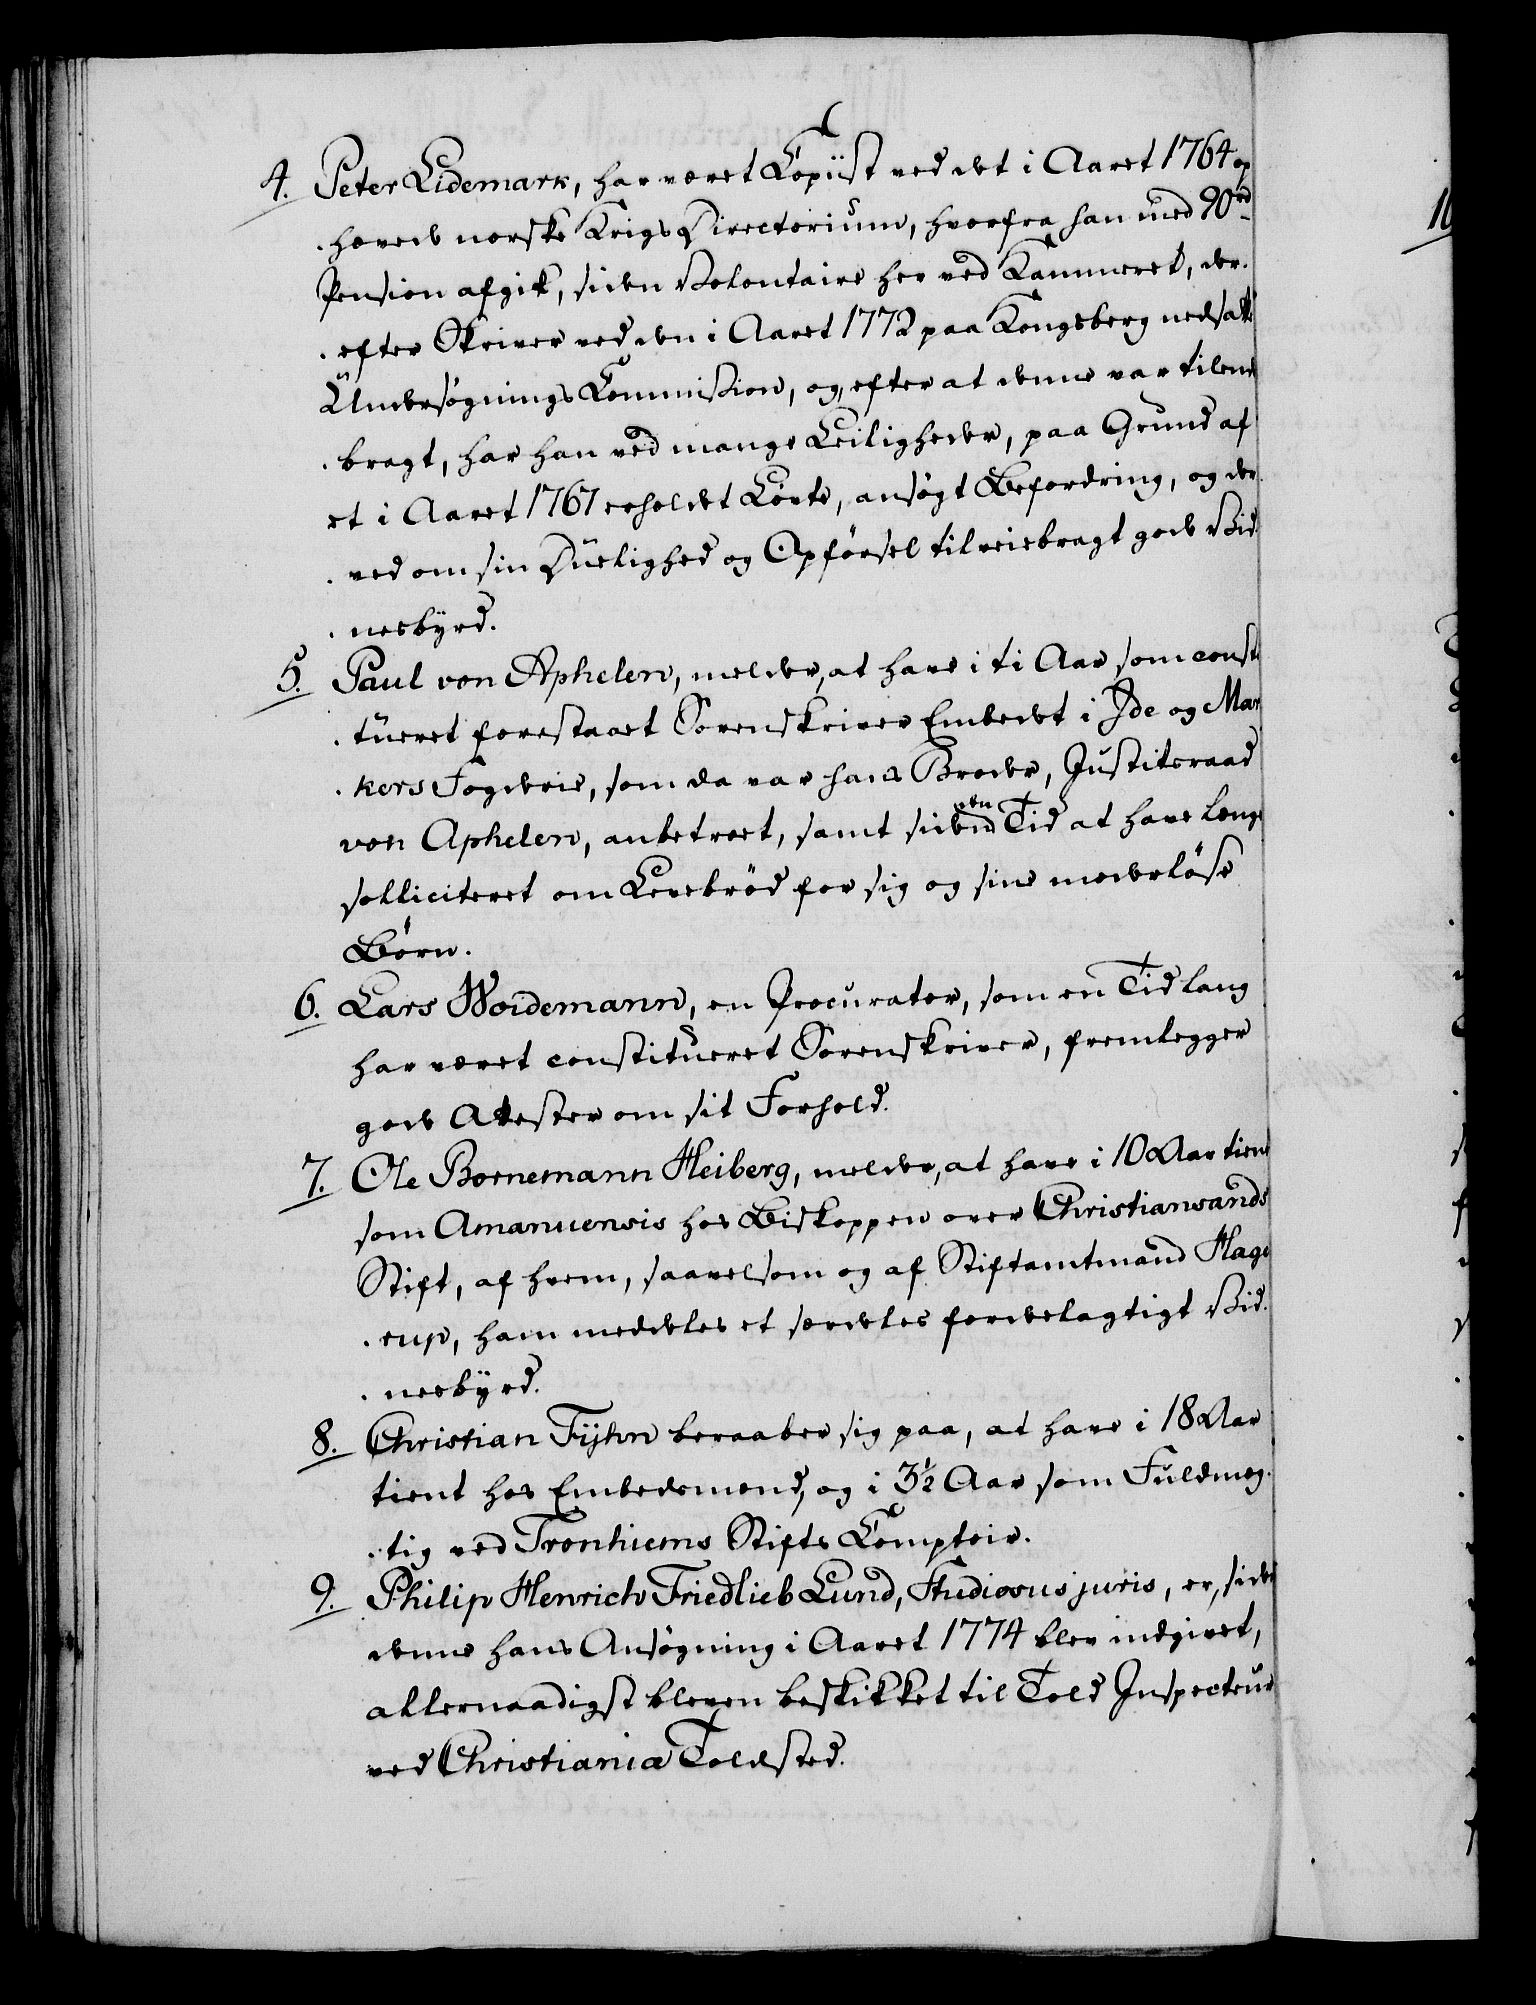 4. Peter Lidemark, har været Copiist ved det i Aaret 1764 op
hævede norske Krigs Directorium, hvorfra han med 90 rd
Pension afgik, siden Volontaire her ved Kammeret, der
efter Skriver ved den i Aaret 1772 paa Kongsberg nedsatte
Undersøgnings Commission, og, efter at denne var tilende
bragt, har han ved mange Leiligheder, paa Grund af
et i Aaret 1767 erholdet Løvte, ansøgt Befordring, og der
ved om sin Duelighed og Opførsel tilveiebragt gode Vid
nesbyrd.
5. Paul von Aphelen, melder, at have i ti Aar som consti
tueret forestaaet Sorenskriver Embedet i Ide og Mar
kers Fogderie, som da var hans Broder, Justitsraad
von Aphelen, anbetroet, samt siden den Tid at have længe
solliciteret om Levebrød for sig og sine moderløse
Børn.
6. Lars Woidemann, en Procurator, som en Tid lang
har været constitueret Sorenskriver, fremlegger
gode Attester om sit Forhold.
7. Ole Bornemann Heiberg, melder, at have i 10 Aar tient
som Amanuensis hos Biskoppen over Christiansands
Stift, af hvem, saavelsom og af Stiftamtmand Hage
rup, ham meddeles et særdeles fordelagtigt Vid
nesbyrd.
8. Christian Fyhn beraaber sig paa, at have i 18 Aar
tient hos Embedsmænd, og i 3½ Aar som Fuldmæg
tig ved Tronhiems Stifts Comptoir.
9. Philip Henrich Friedlieb Lund, Studiosus juris, er, siden
denne hans Ansøgning i Aaret 1774 blev indgivet,
allernaadigst bleven beskikket til Told Inspecteur
ved Christiania Toldsted.